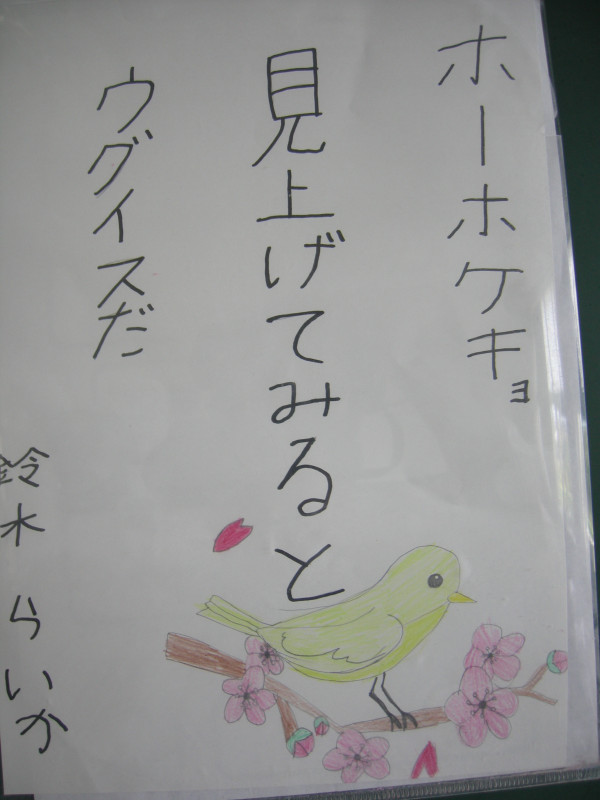 ホーホケキョ
見上げてみると
ウグイスだ
鈴木 らいか